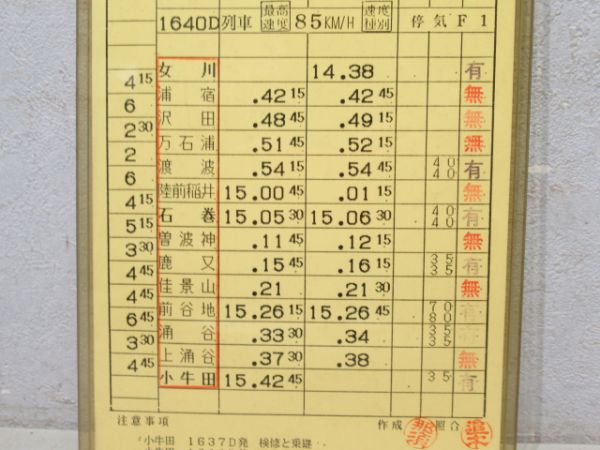 1640D 列車 最高速度 85KM/H 速度種別 停気F1
女川 14.38 有
4 15
浦宿 .42 15 .42 45 無
6
沢田 .48 45 .49 15 無
2 30
万石浦 .51 45 .52 15 無
2
渡波 .54 15 .54 45 40 40 有
6
陸前稲井 15.00 45 .01 15 無
4 15
石巻 15.05 30 15.06 30 40 40 有
5 15
曽波神 .11 45 .12 15 無
3 30
鹿又 .15 45 .16 15 35 35 有
4 45
佳景山 .21 .21 30 無
4 45
前谷地 15.26 15 15.26 45 70 80 有
6 45
涌谷 .33 30 .34 35 35
3 30
上涌谷 .37 30 .38 無
4 45
小牛田 15.42 45 35 有
注意事項 作成 照合
小牛田 1637D発 検修と乗継